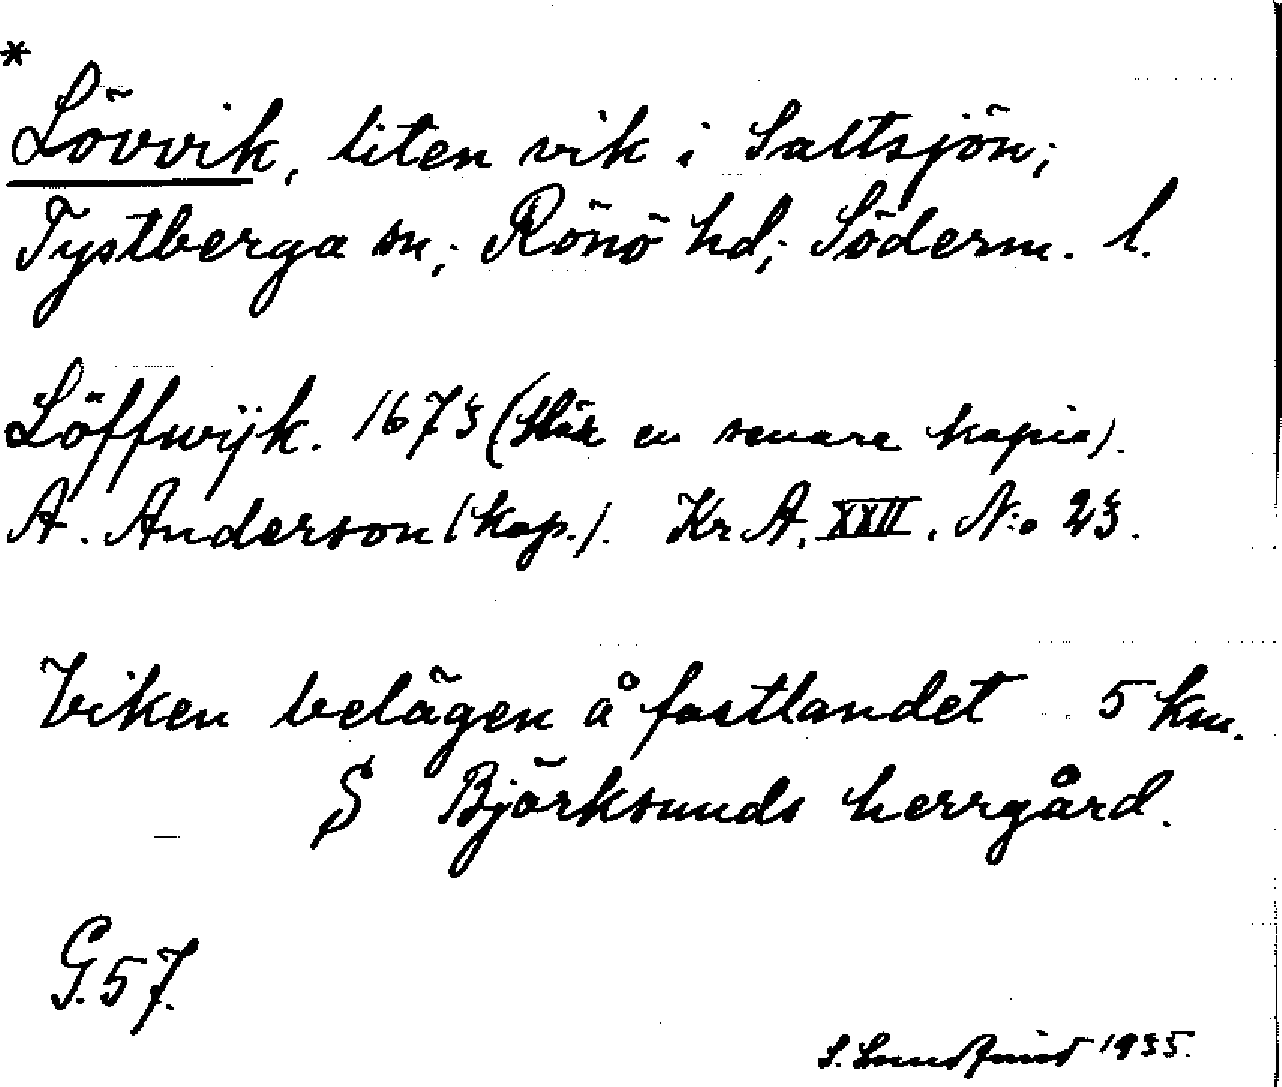 *
Lövvik, liten vik i Saltsjön;
Tystberga sn; Rönö hd; Söderm. l.
Löffwijk. 1673 (Här en senare kopia).
A. Anderson (kop.). Kr. A. XXII. N:o 23.
Viken belägen å fastlandet 5 km.
S Björksunds herrgård.
G. 57.
S. 1935.